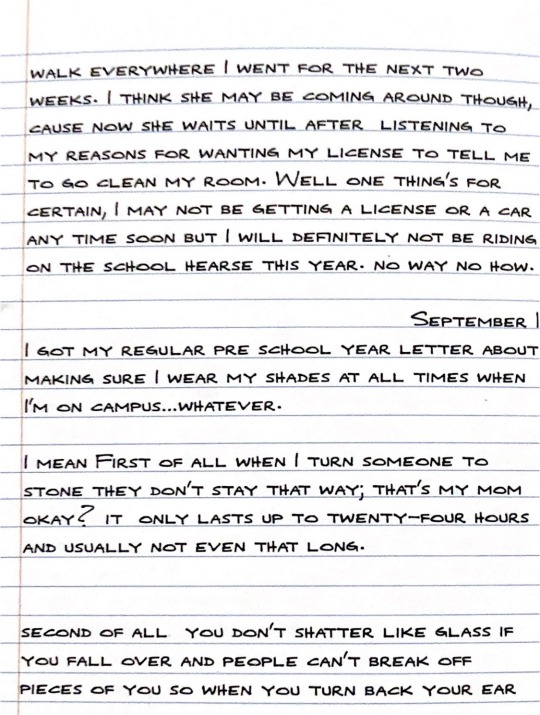 WALK EVERYWHERE I WENT FOR THE NEXT TWO
WEEKS. I THINK SHE MAY BE COMING AROUND THOUGH,
CAUSE NOW SHE WAITS UNTIL AFTER LISTENING TO
MY REASONS FOR WANTING MY LICENSE TO TELL ME
TO GO CLEAN MY ROOM. WELL ONE THING'S FOR
CERTAIN, I MAY NOT BE GETTING A LICENSE OR A CAR
ANY TIME SOON BUT I WILL DEFINITELY NOT BE RIDING
ON THE SCHOOL HEARSE THIS YEAR. NO WAY NO HOW.
SEPTEMBER 1
I GOT MY REGULAR PRE SCHOOL YEAR LETTER ABOUT
MAKING SURE I WEAR MY SHADES AT ALL TIMES WHEN
I'M ON CAMPUS...WHATEVER.
I MEAN FIRST OF ALL WHEN I TURN SOMEONE TO
STONE THEY DON'T STAY THAT WAY; THAT'S MY MOM
OKAY? IT ONLY LASTS UP TO TWENTY-FOUR HOURS
AND USUALLY NOT EVEN THAT LONG.
SECOND OF ALL YOU DON'T SHATTER LIKE GLASS IF
YOU FALL OVER AND PEOPLE CAN'T BREAK OFF
PIECES OF YOU SO WHEN YOU TURN BACK YOUR EAR